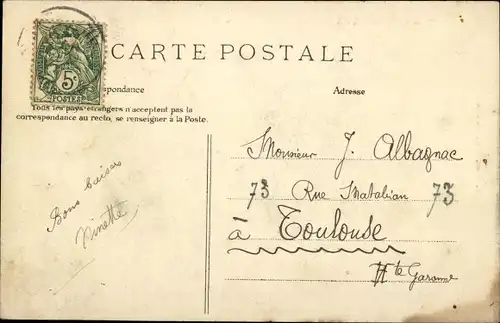 CARTE POSTALE
5c
POSTES
pondance
Adresse
Tous les pays étrangers n'acceptent pas la
correspondance au recto, se renseigner à la Poste.
Bons baisers
Ninette
Monsieur J. Albagnac
73 Rue Matabiau 73
à Toulouse
Hte Garonne